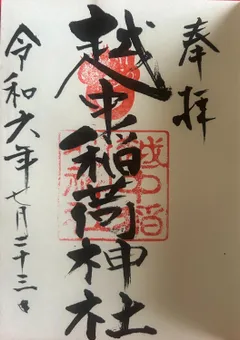 奉拝
越中稲荷神社
令和六年七月二十三日
越中稲